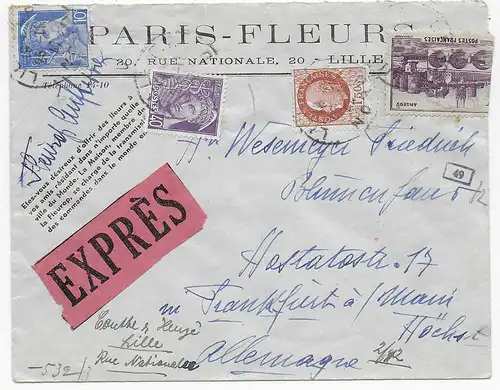 PARIS-FLEURS
20, RUE NATIONALE, 20 - LILLE
Téléphone
10
POSTES
40
POSTES
FRANÇAISES
POSTES FRANÇAISES
ANGERS
Etes-vous désireux d'offrir des fleurs à
vos amis résidant dans n'importe quelle
ville du Monde. La Maison, membre de
la Fleurop, se charge de la transmission
des commandes dans le monde
EXPRÈS
Wesemeyer Friedrich
Blumenfaus
49
Hostatostr. 17
Frankfurt a/ Main
Höchst
Allemagne
Lille
Rue Nationale
532